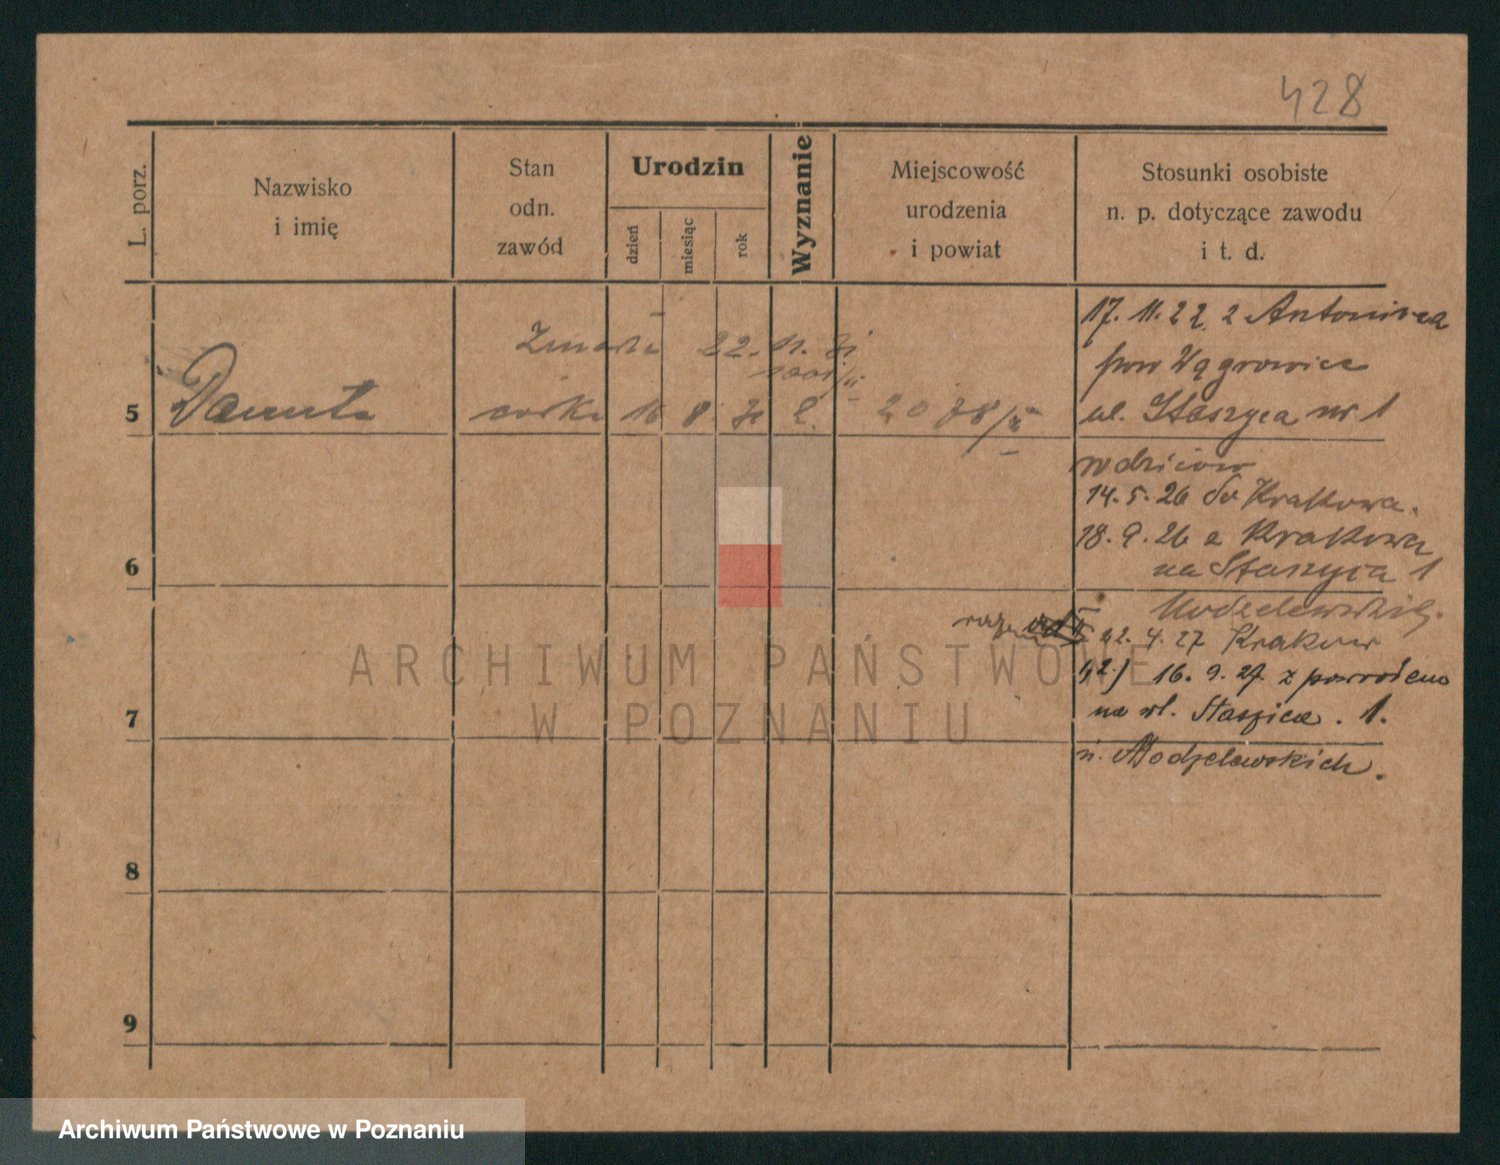 428
L. porz.
Nazwisko
i imię
Stan
odn.
zawód
Urodzin
dzień
miesiąc
rok
Wyznanie
Miejscowość
urodzenia
i powiat
Stosunki osobiste
n. p. dotyczące zawodu
i t. d.
Zmarła 22. 11.
5 Danuta córka 16 8
2078/
17. 11. 22 z Antoniewa
pow Wągrowiec
ul. Staszyca nr 1
rodziców
14. 5. 26 do Krakowa.
18. 9. 26 z Krakowa
na Staszyca 1
6
Modzelewskich.
22. 4. 27 Krakow
16. 9. 27 z powrotem
na ul. Staszica. 1.
7
u. Modzelewskich.
8
9
ARCHIWUM PAŃSTWOWE
W POZNANIU
Archiwum Państwowe w Poznaniu